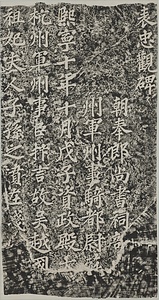 表忠觀碑
朝奉郎尚書祠部
州軍州事騎都尉
熙寧十年十月戊子資政殿
杭州軍州事臣抃言故吳越國
祖妃夫人子孫之墳在錢